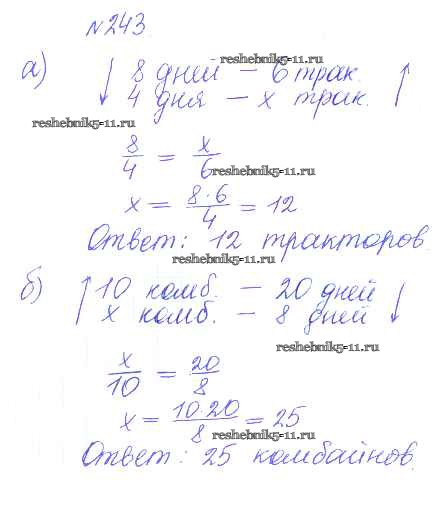 №243
а) ↓ 8 дней – 6 трак. ↑
reshebnik5-11.ru
4 дня – х трак.
reshebnik5-11.ru
8/4 = х/6
reshebnik5-11.ru
х = 8·6/4 = 12
Ответ: 12 тракторов.
reshebnik5-11.ru
б) ↑ 10 комб. – 20 дней ↓
х комб. – 8 дней
reshebnik5-11.ru
х/10 = 20/8
х = 10·20/8 = 25
reshebnik5-11.ru
Ответ: 25 комбайнов.